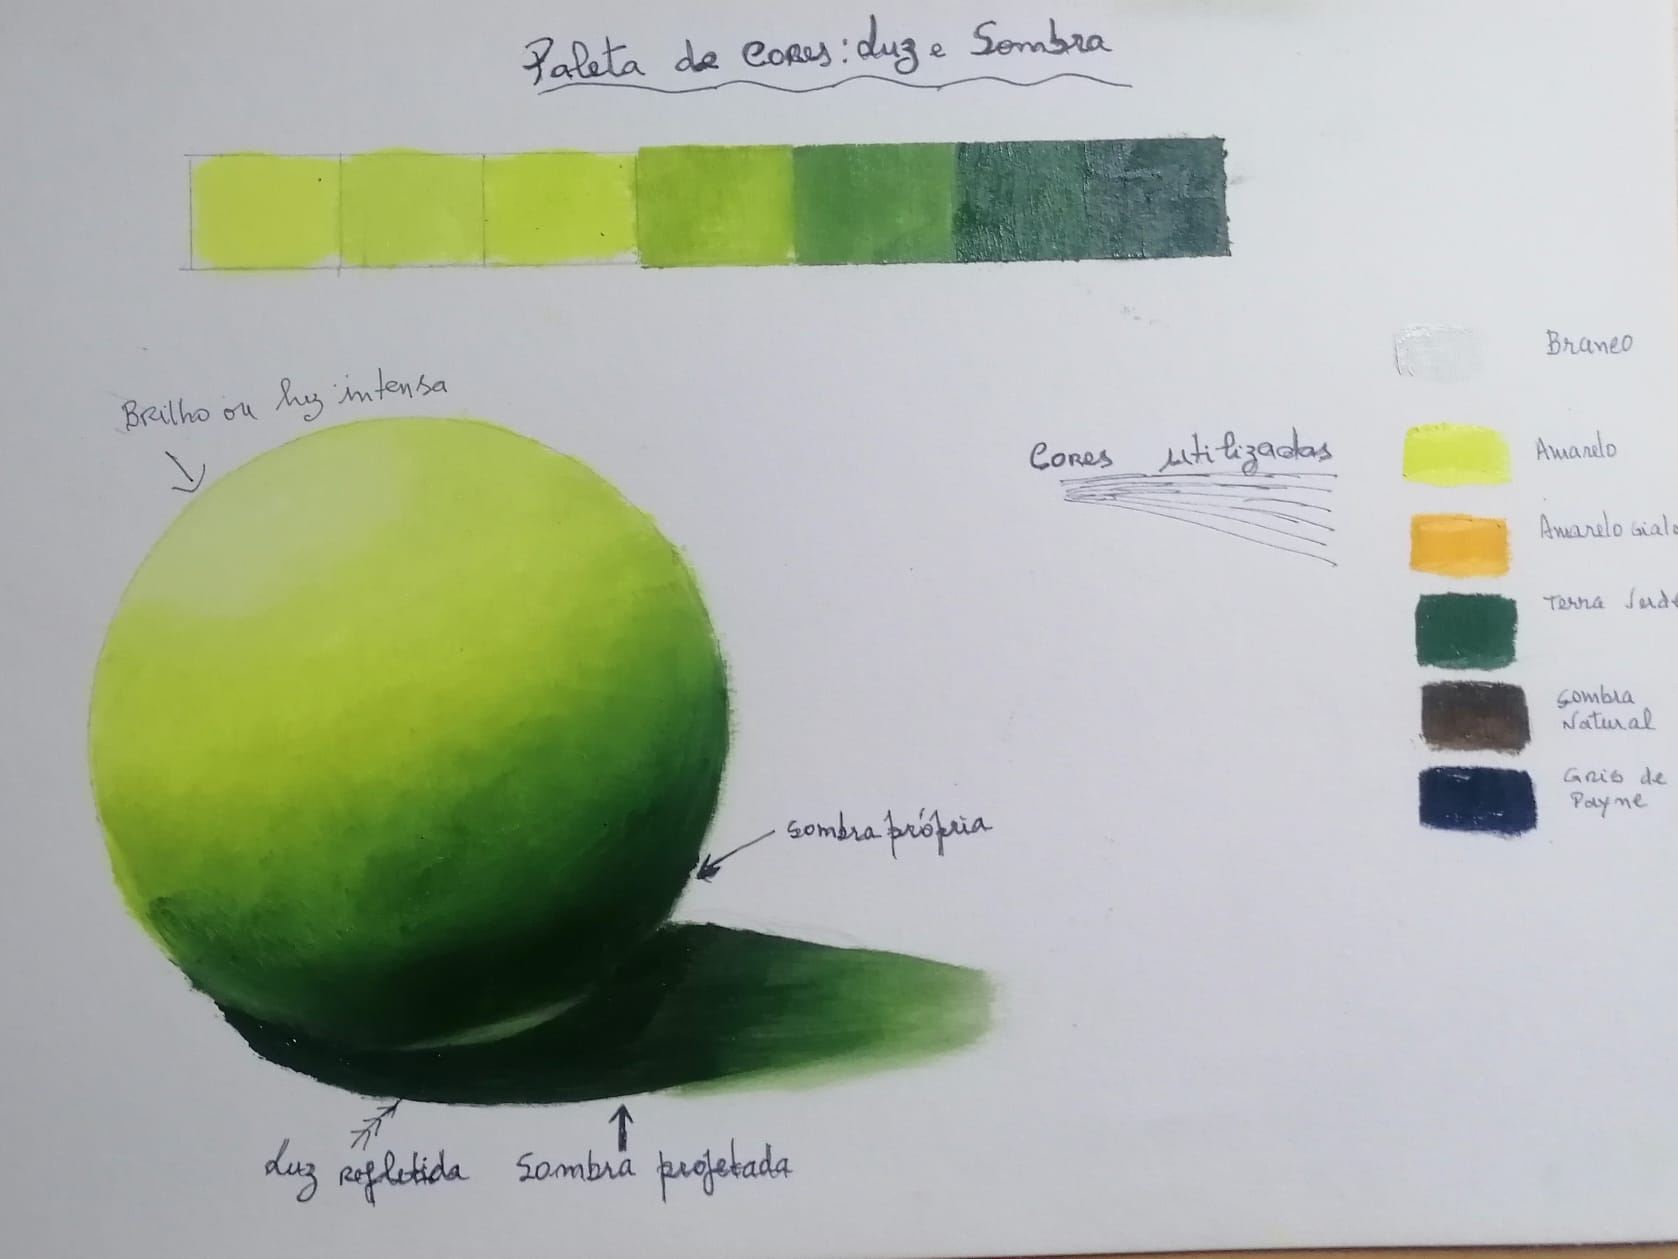 Paleta de Cores: Luz e Sombra
Brilho ou luz intensa
Cores utilizadas
Branco
Amarelo
Amarelo
Terra
Sombra
Natural
Gris de
Payne
Sombra própria
Luz refletida
Sombra projetada